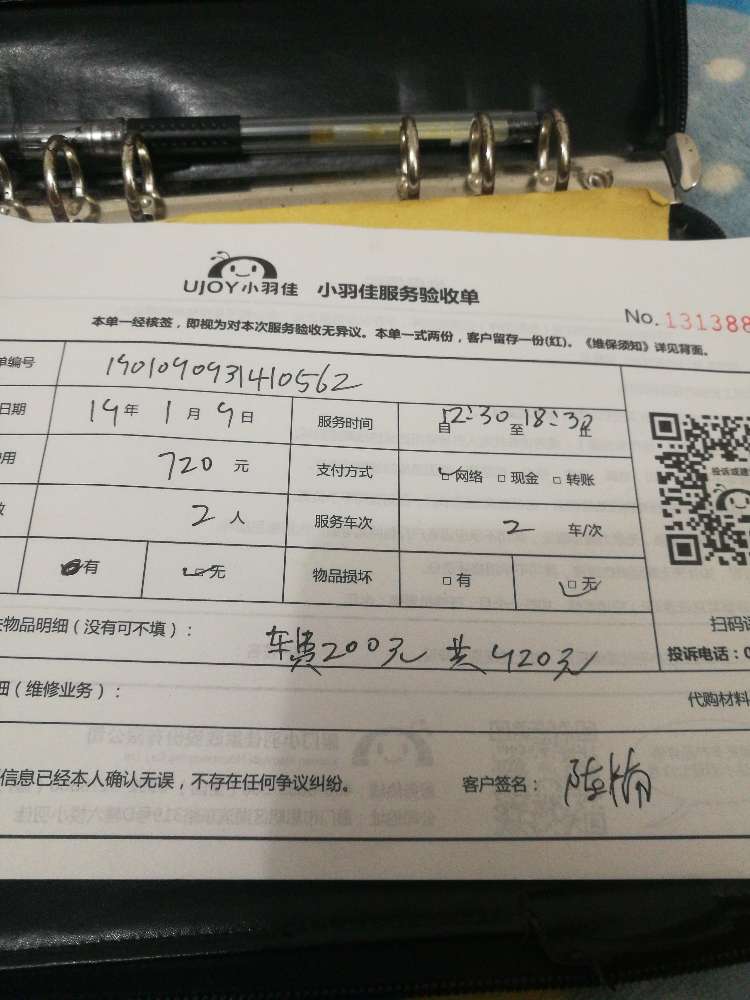 UJOY小羽佳 小羽佳服务验收单
No.131388
本单一经核签，即视为对本次服务验收无异议。本单一式两份，客户留存一份(红)。《维保须知》详见背面。
单编号 1901090931410562
日期 19年 1月 9日 服务时间 自12:30至18:30止
用 720元 支付方式 网络 现金 转账
2人 服务车次 2 车/次
有 无 物品损坏 有 无
扫码
物品明细（没有可不填）： 车费200元 共420元
投诉电话：0
细（维修业务）： 代购材料
信息已经本人确认无误，不存在任何争议纠纷。 客户签名：